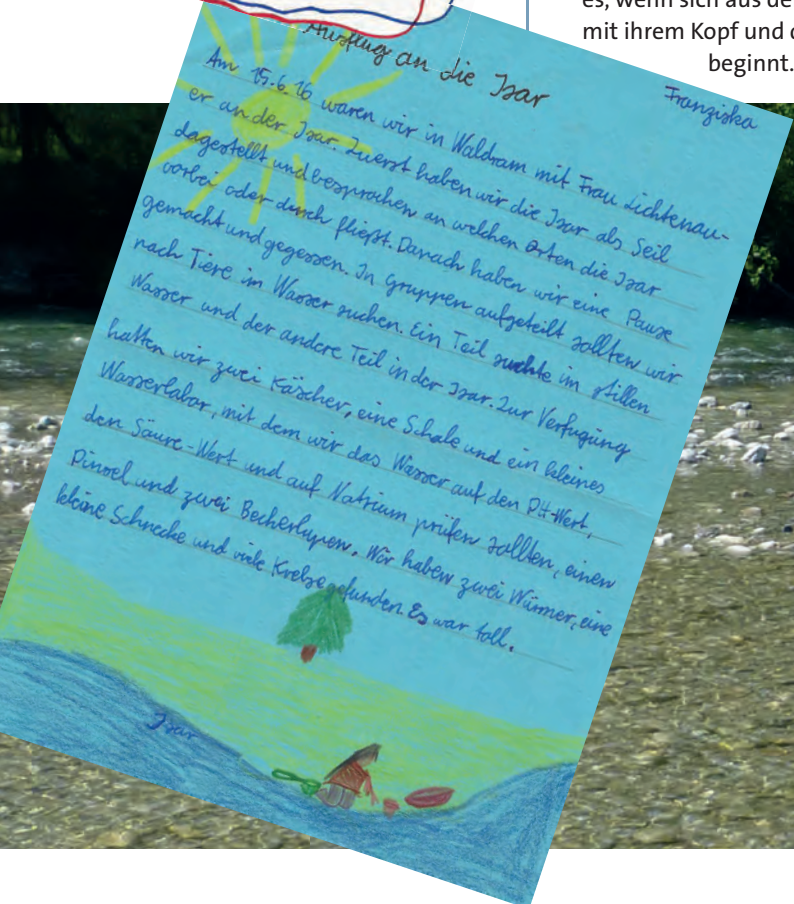 es, wenn sich aus de
mit ihrem Kopf und d
beginnt.
Ausflug an die Isar
Franziska
Am 15.6.16 waren wir in Waldram mit Frau Lichtenau-
er an der Isar. Zuerst haben wir die Isar als Seil
dagestellt und besprochen an welchen Orten die Isar
vorbei oder durch fließt. Danach haben wir eine Pause
gemacht und gegessen. In gruppen aufgeteilt sollten wir
nach Tiere im Wasser suchen. Ein Teil suchte im stillen
Wasser und der andere Teil in der Isar. Zur Verfügung
hatten wir zwei Käscher, eine Schale und ein kleines
Wasserlabor, mit dem wir das Wasser auf den PH-Wert,
den Säure-Wert und auf Natrium prüfen sollten, einen
Pinsel und zwei Becherlupen. Wir haben zwei Würmer, eine
kleine Schnecke und viele Krebse gefunden. Es war toll.
Isar